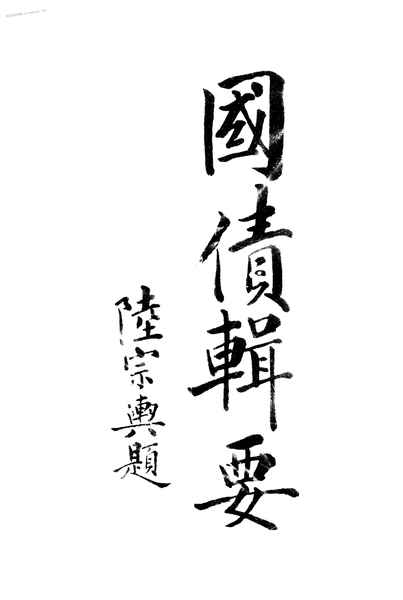 國債輯要
陸宗輿題